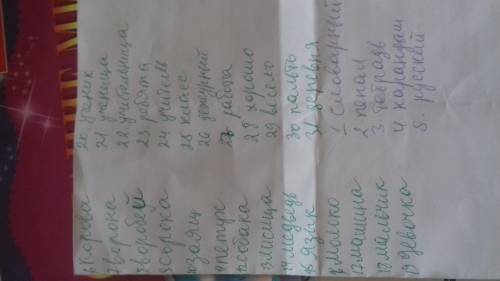 6 Корова
7 ворона
8 воробей
9 сорока
10 заяц
11 петух
12 собака
13 лисица
14 медведь
15 язык
16 молоко
17 машина
18 мальчик
19 девочка
20 ученик
21 ученица
22 учительница
23 ребята
24 учитель
25 класс
26 дежурный
27 работа
28 хорошо
29 весело
30 пальто
31 деревня
1 Словарный
2 понал
3 тетрадь
4 карандаш
5. русский